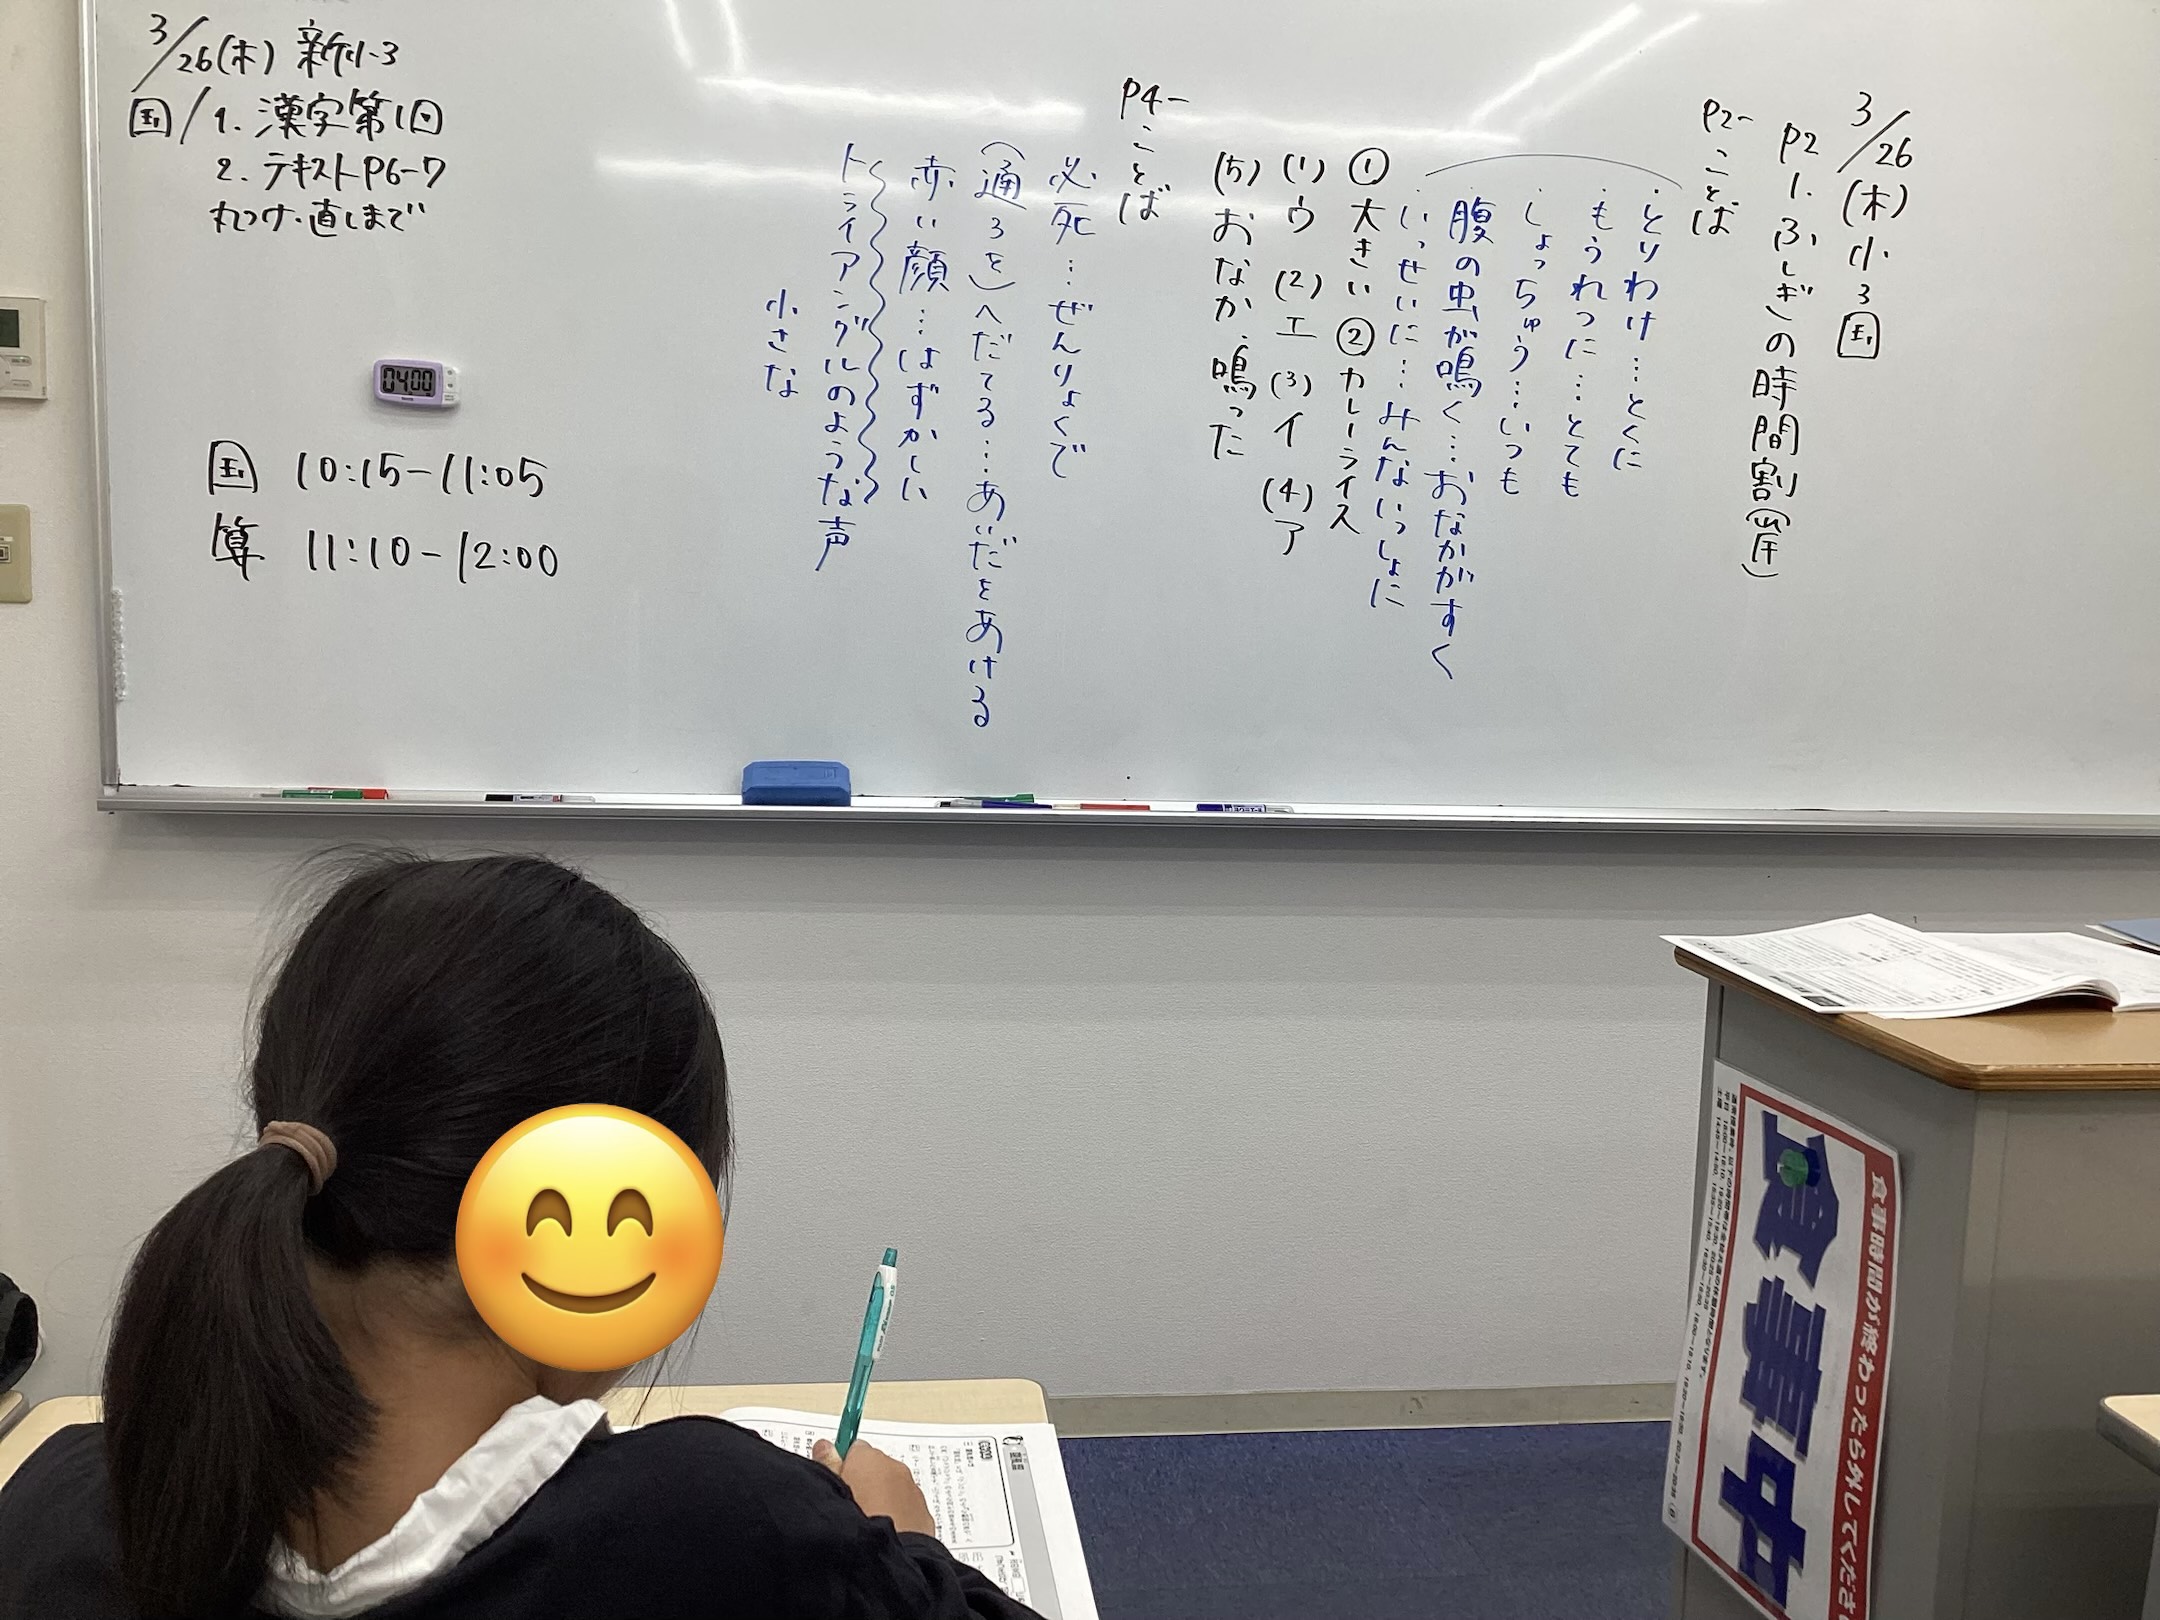 3/26(木) 新小3
国/1. 漢字第1回
2. テキストP6-7
丸つけ・直しまで
04:00
国 10:15-11:05
算 11:10-12:00
3/26(木)小3国
P2 1. ふしぎの時間割(岸)
P2-ことば
・とりわけ…とくに
・もうれつに…とても
・しょっちゅう…いつも
・腹の虫が鳴く…おなかがすく
・いっせいに…みんないっしょに
①大きい ②カレーライス
(1)ウ (2)エ (3)イ (4)ア
(5)おなか、鳴った
P4-ことば
必死…ぜんりょくで
(通ろを)へだてる…あいだをあける
赤い顔…はずかしい
トライアングルのような声
小さな
食事中
食事時間が終わったら外してくださ